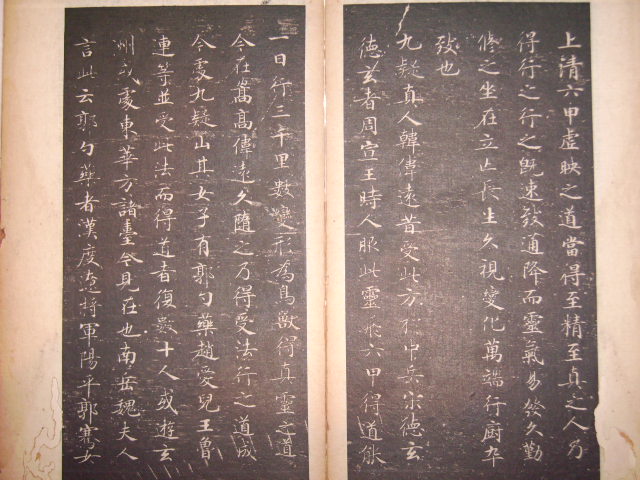 上清六甲虛映之道當得至精至真之人乃
得行之行之既速致通降而靈氣易發久勤
修之坐在立亡長生久視變化萬端行廚卒
致也
九疑真人韓偉遠昔受此方於中岳宋德玄
德玄者周宣王時人服此靈飛六甲得道能
一日行三千里數變形為鳥獸得真靈之道
今在嵩高偉遠久隨之乃得受法行之道成
今處九疑山其女子有郭勺藥趙愛兒王魯
連等並受此法而得道者復數十人或遊玄
州或處東華方諸臺今見在也南岳魏夫人
言此云郭勺藥者漢度遼將軍陽平郭騫女